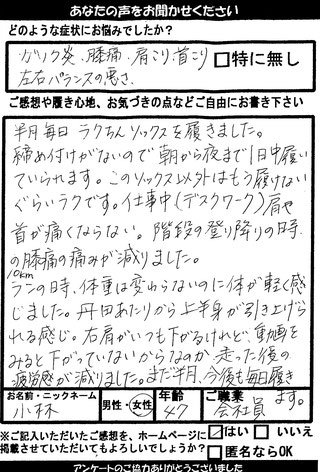 あなたの声をお聞かせください
どのような症状にお悩みでしたか?
ガック炎、膝痛、肩こり、首こり
左右バランスの悪さ、
□特に無し
ご感想や履き心地、お気づきの点などご自由にお書き下さい
半月毎日 ラクちんソックスを履きました。
締め付けがないので朝から夜まで1日中履い
ていられます。このソックス以外はもう履けない
ぐらいラクです。仕事中(デスクワーク)肩や
首が痛くならない。階段の登り降りの時
の膝痛の痛みが減りました。
10km
ランの時、体重は変わらないのに体が軽く感
じました。丹田あたりから上半身が引き上げら
れる感じ。右肩がいつも下がるけれど、動画を
みると下がっていないからなのか 走った後の
疲労感が減りました。まだ半月、今後も毎日履き
ます。
お名前・ニックネーム
小林
男性・女性
年齢
47
ご職業
会社員
※ご記入いただいたご感想を、ホームページに
掲載させていただいてもよろしいでしょうか?
□はい □いいえ
□匿名ならOK
アンケートのご協力ありがとうございました